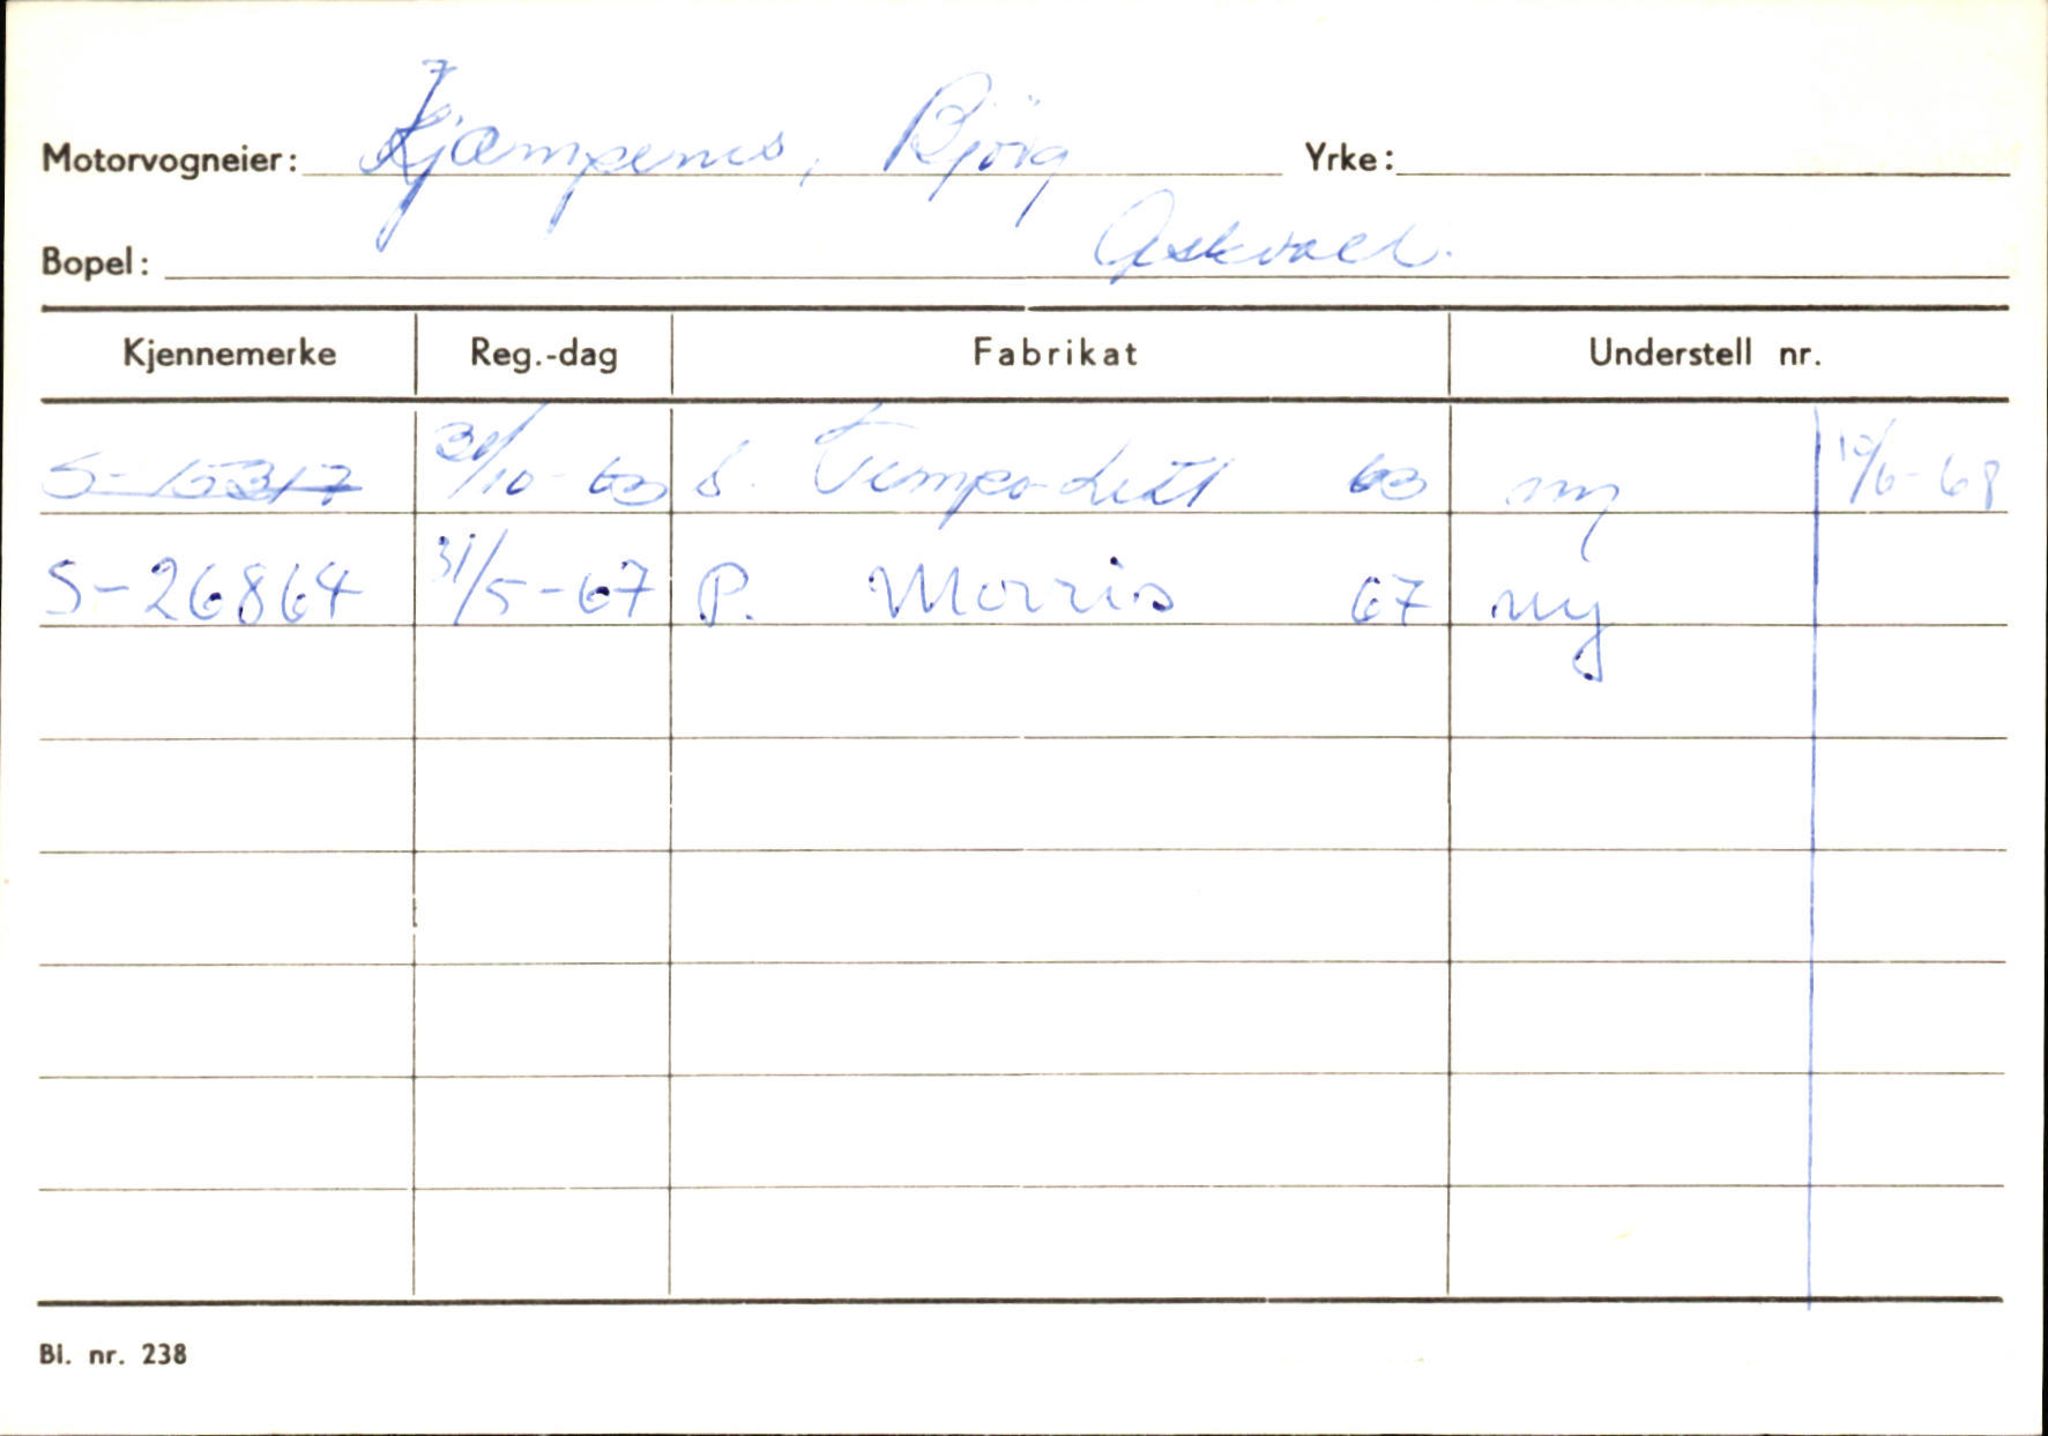 Motorvogneier: Kjæmpenes, Björg Yrke:
Bopel: Askvoll.
Kjennemerke Reg.-dag Fabrikat Understell nr.
S-15317 30/10-63 L. Tempo-Lett 63 ny 10/6-68
S-26864 31/5-67 P. Morris 67 ny
Bl. nr. 238